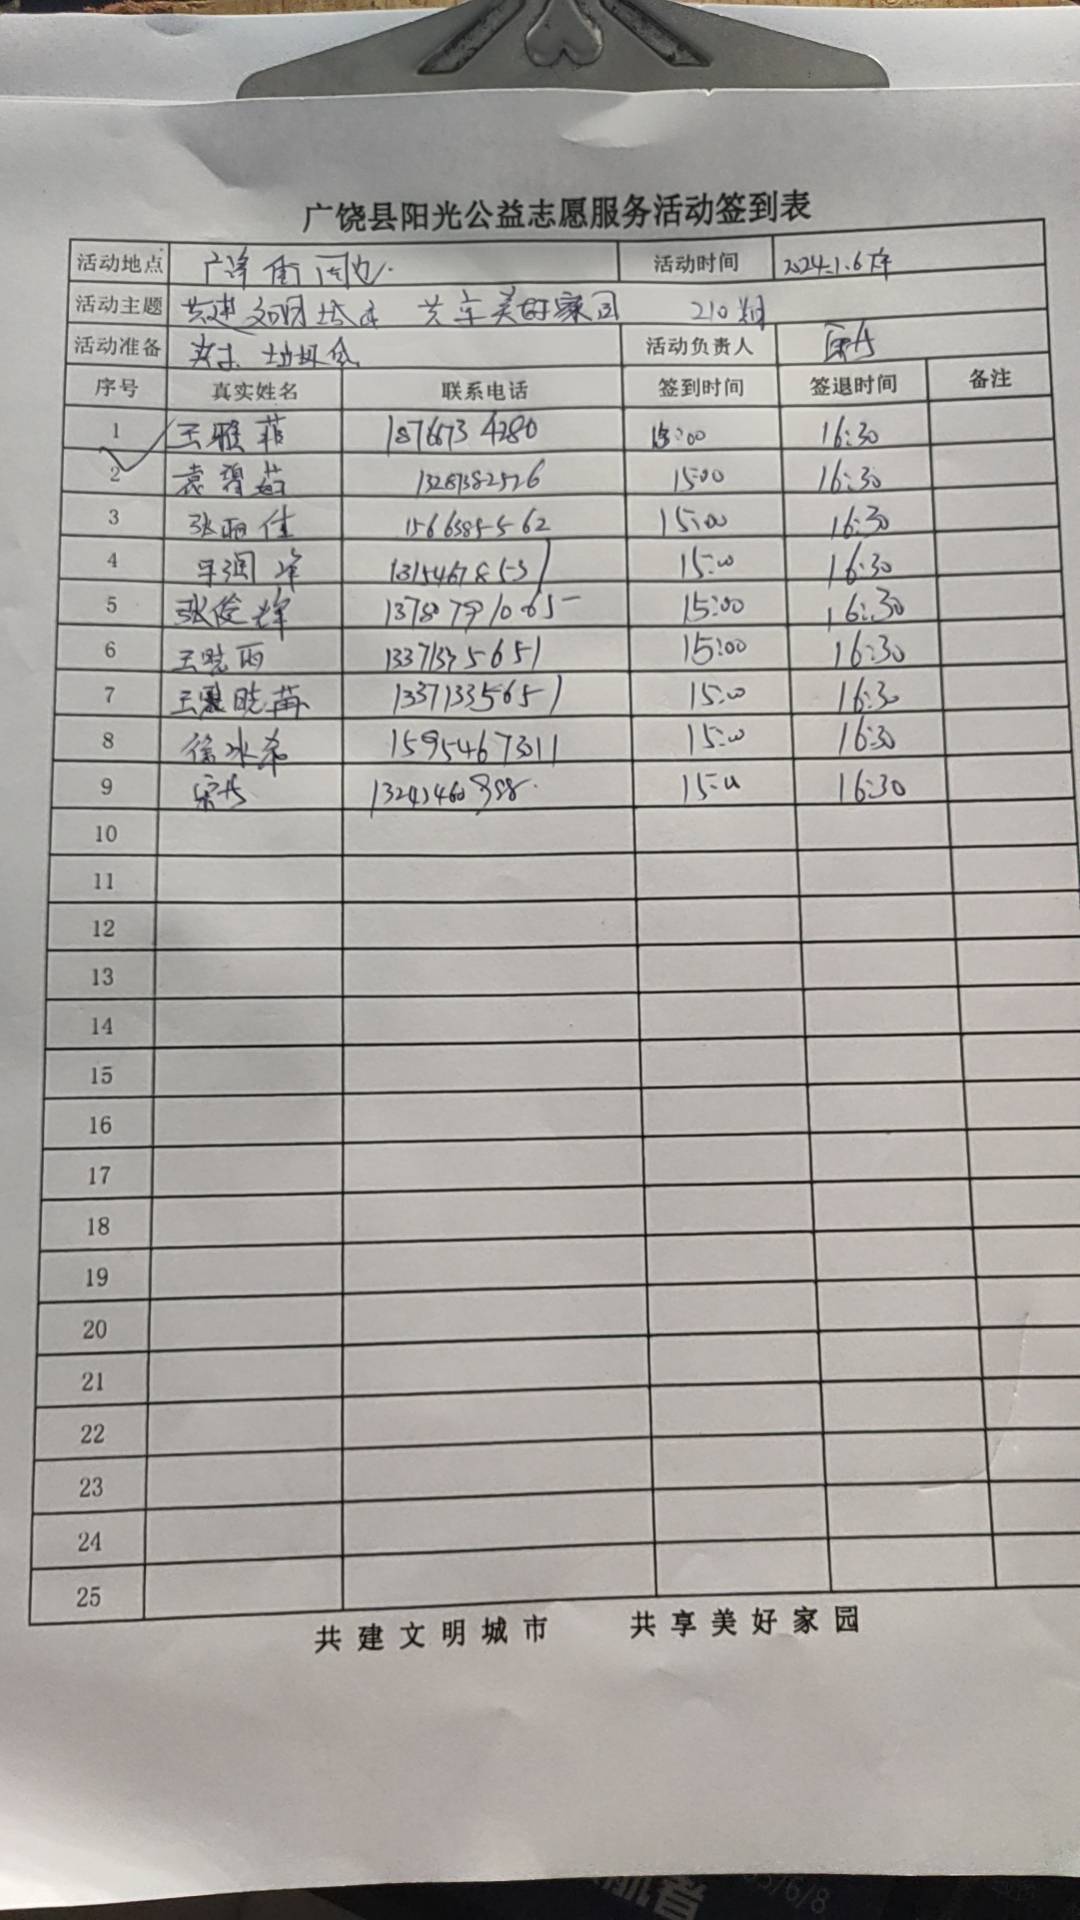 广饶县阳光公益志愿服务活动签到表
活动地点 广泽街周边 活动时间 2024.1.6
活动主题 共建文明城市 共享美好家园 210期
活动准备 垃圾袋 活动负责人
序号 真实姓名 联系电话 签到时间 签退时间 备注
1 王雅菲 18766734280 15:00 16:30
2 袁碧茹 13287382526 15:00 16:30
3 张雨佳 15:00 16:30
4 15:00 16:30
5 张俊辉 15:00 16:30
6 王晓雨 15:00 16:30
7 13371335651 15:00 16:30
8 徐冰希 15954673011 15:00 16:30
9 15:00 16:30
10
11
12
13
14
15
16
17
18
19
20
21
22
23
24
25
共建文明城市 共享美好家园
/6/8